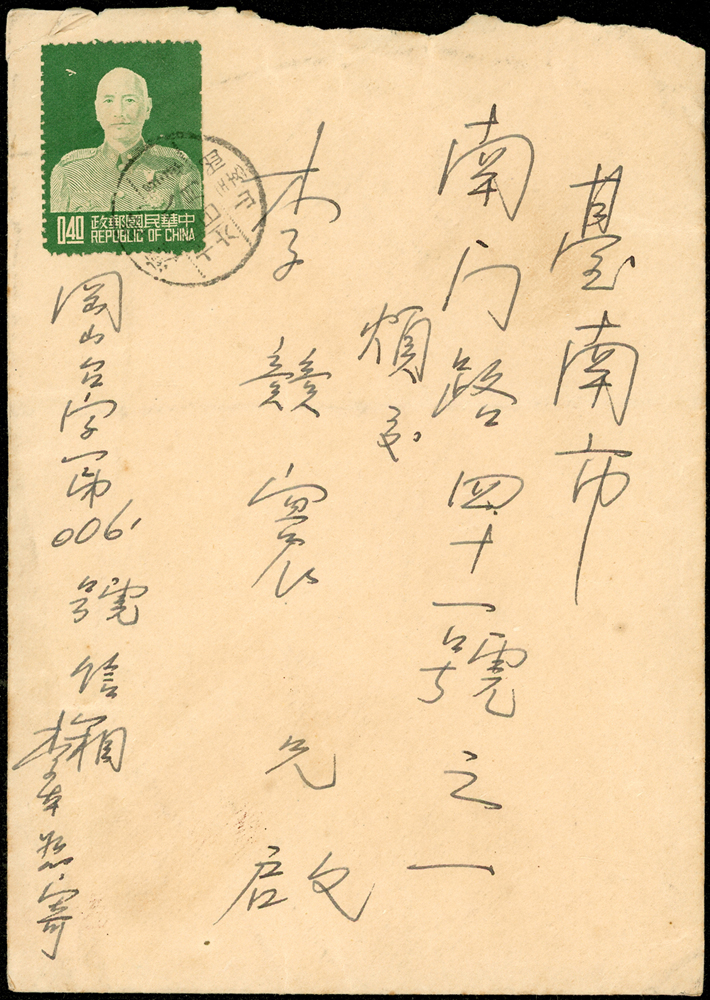 臺南市
南门路四十一號之一
煩交
李競寰 兄 啟
岡山台字第006號信箱 李
中華民國郵政
040 REPUBLIC OF CHINA